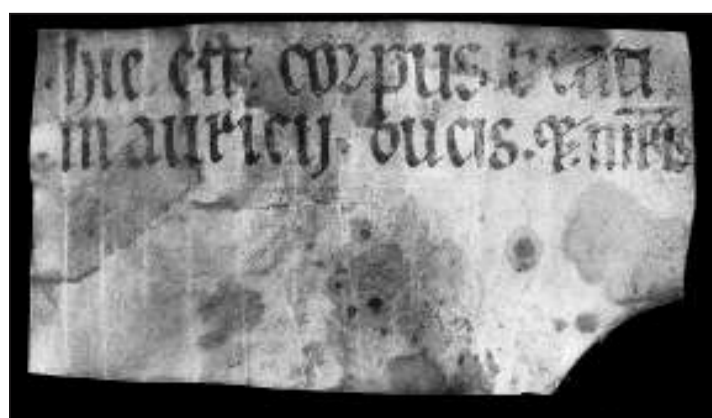 hic est corpus beati
mauricij. ducis. et mr̄is